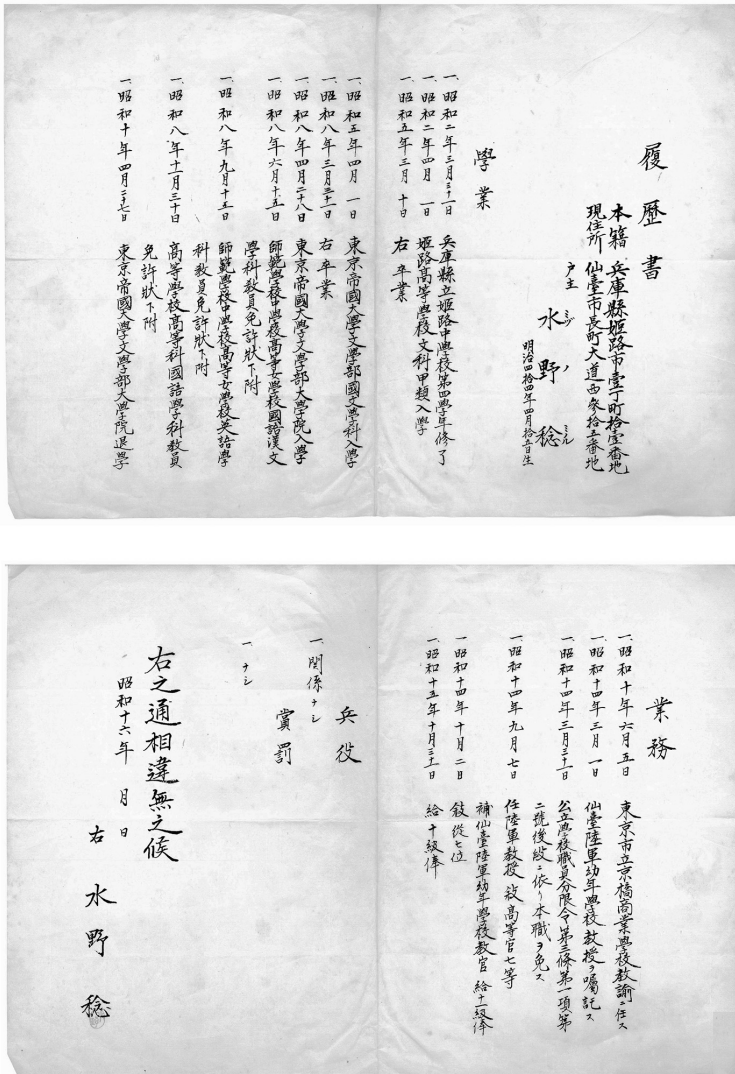 履歴書
本籍 兵庫縣姫路市壹丁町拾壹番地
現住所 仙臺市長町大道西參拾五番地
戸主 水野稔
ミヅノミノル
明治四拾四年四月拾五日生
學業
一、昭和二年三月三十一日 兵庫縣立姫路中學校第四學年修了
一、昭和二年四月一日 姫路高等學校文科甲類入學
一、昭和五年三月十日 右卒業
一、昭和五年四月一日 東京帝國大學文學部國文學科入學
一、昭和八年三月三十一日 右卒業
一、昭和八年四月二十八日 東京帝國大學文學部大學院入學
一、昭和八年六月十五日 師範學校中學校高等女學校國語漢文
學科教員免許狀下附
一、昭和八年九月十五日 師範學校中學校高等女學校英語學
科教員免許狀下附
一、昭和八年十一月三十日 高等學校高等科國語學科教員
免許狀下附
一、昭和十年四月二十七日 東京帝國大學文學部大學院退學
業務
一、昭和十年六月五日 東京市立京橋商業學校教諭ニ任ス
一、昭和十四年三月一日 仙臺陸軍幼年學校教授ヲ囑託ス
一、昭和十四年三月三十一日 公立學校職員分限令第三條第一項第
二號後段ニ依リ本職ヲ免ス
一、昭和十四年九月七日 任陸軍教授 敍高等官七等
補仙臺陸軍幼年學校教官 給十一級俸
一、昭和十四年十月二日 敍從七位
一、昭和十五年十月三十一日 給十級俸
兵役
一、関係ナシ
賞罰
一、ナシ
右之通相違無之候
昭和十六年 月 日
右 水野稔